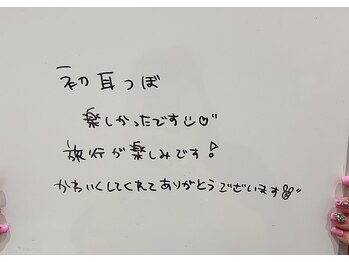 初耳つぼ
楽しかったです
旅行が楽しみです!
かわいくしてくれてありがとうございます